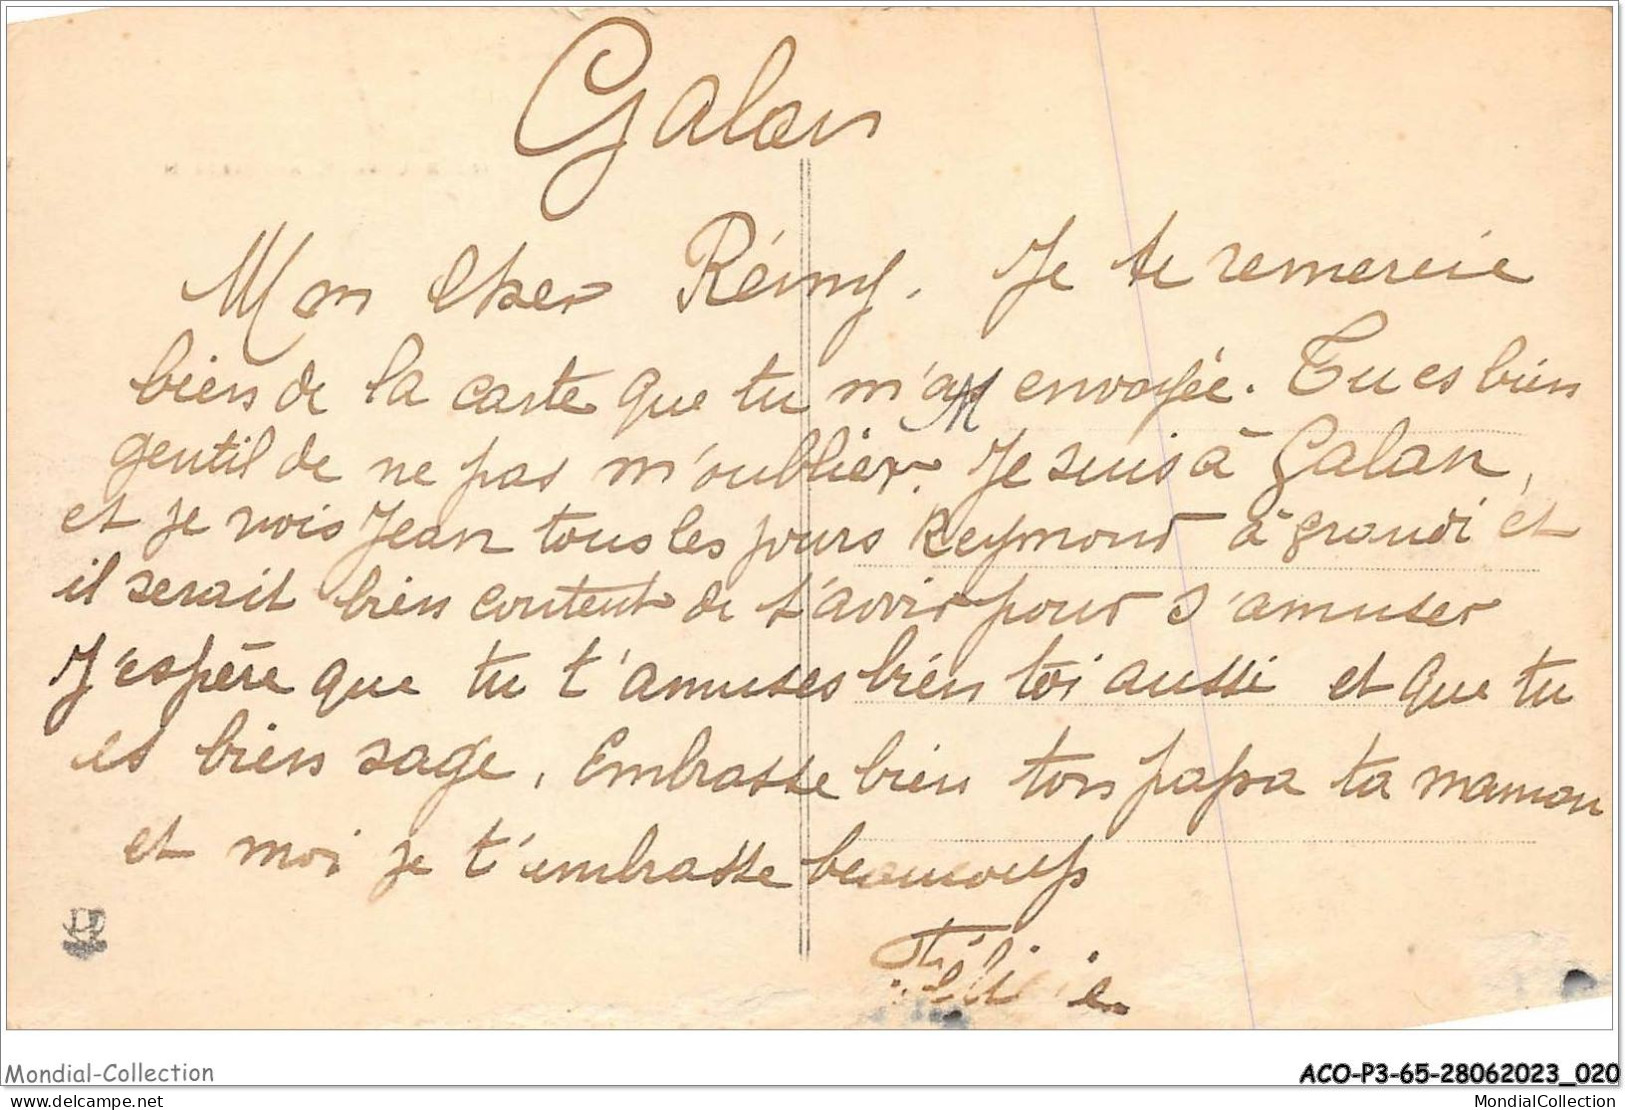 Galan
Mon cher Rémy. Je te remercie
bien de la carte que tu m'as envoyée. Tu es bien
gentil de ne pas m'oublier. Je suis à Galan,
et je vois Jean tous les jours Reymond à grandi et
il serait bien content de t'avoir pour s'amuser
J'espère que tu t'amuses bien toi aussi et que tu
es bien sage. Embrasse bien ton papa ta maman
et moi je t'embrasse beaucoup
Félicie
Mondial-Collection
ACO-P3-65-28062023_020
delcampe.net
MondialCollection